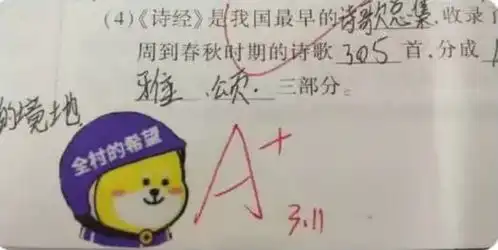 (4)《诗经》是我国最早的诗歌总集,收录
周到春秋时期的诗歌 305 首,分成
雅 、颂. 三部分。
的境地
全村的希望
A+
3.11